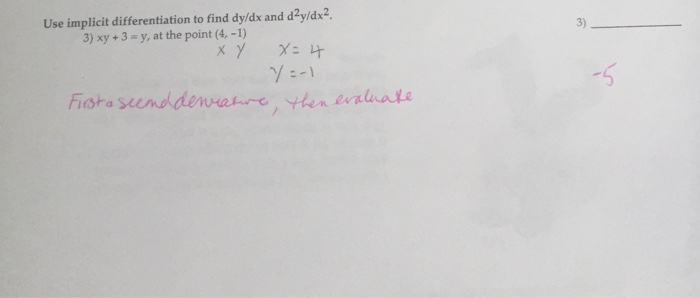 Use implicit differentiation to find dy/dx and d²y/dx².
3) xy + 3 = y, at the point (4, −1)
3) ____________
x y x = 4
y = -1
-5
First & second derivative, then evaluate